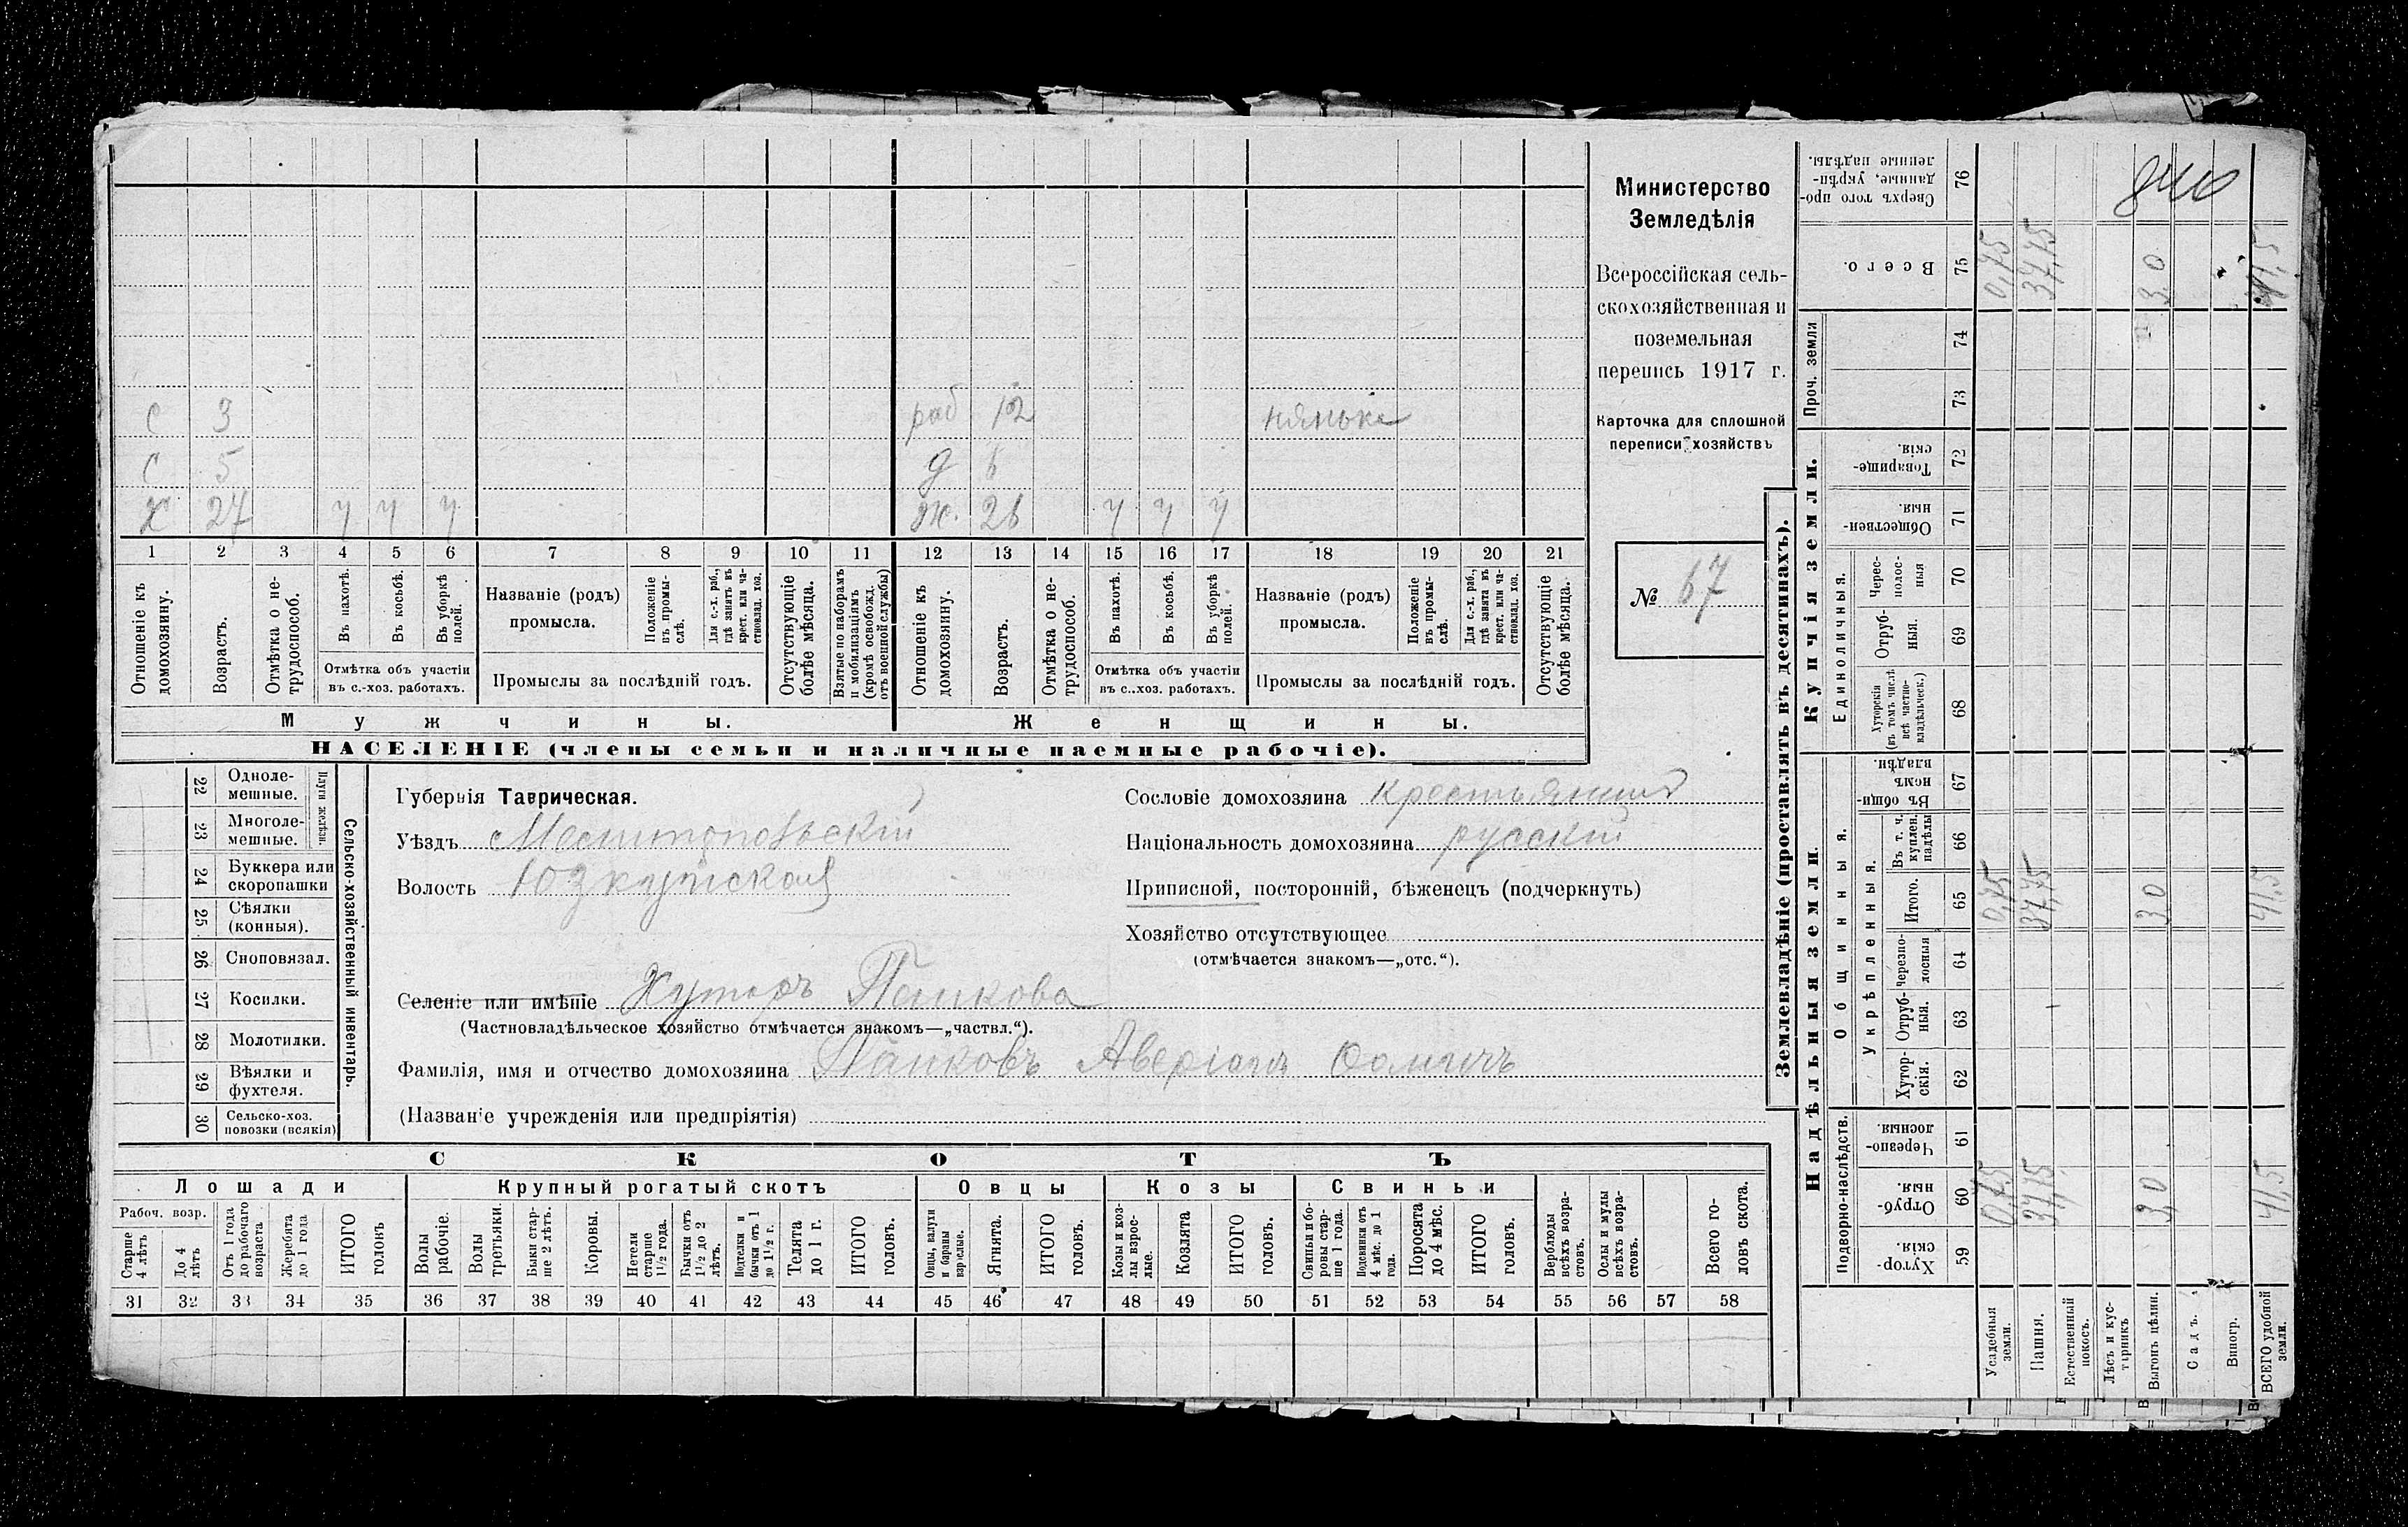 с 3 раб 12 нянька
с 5 д
х 27 ч ч ч ж. 28 ч ч ч
1 2 3 4 5 6 7 8 9 10 11 12 13 14 15 16 17 18 19 20 21
Отношеніе къ домохозяину.
Возрастъ.
Отмѣтка о нетрудоспособ.
Въ пахотѣ.
Въ косьбѣ.
Въ уборкѣ полей.
Отмѣтка объ участіи
въ с.-хоз. работахъ.
Названіе (родъ)
промысла.
Положеніе въ промыслѣ.
Для с.-х. раб., гдѣ занятъ въ крест. или частновлад. хоз.
Промыслы за послѣдній годъ.
Отсутствующіе болѣе мѣсяца.
Взятые по наборамъ и мобилизаціямъ (кромѣ освобожд. отъ военной службы)
Отношеніе къ домохозяину.
Возрастъ.
Отмѣтка о нетрудоспособ.
Въ пахотѣ.
Въ косьбѣ.
Въ уборкѣ полей.
Отмѣтка объ участіи
въ с.-хоз. работахъ.
Названіе (родъ)
промысла.
Положеніе въ промыслѣ.
Для с.-х. раб., гдѣ занята въ крест. или частновлад. хоз.
Промыслы за послѣдній годъ.
Отсутствующіе болѣе мѣсяца.
Мужчины. Женщины.
НАСЕЛЕНІЕ (члены семьи и наличные наемные рабочіе).
Министерство
Земледѣлія
Всероссійская сель-
скохозяйственная и
поземельная
перепись 1917 г.
Карточка для сплошной
переписи хозяйствъ
№ 67
22 Одноле-
мешные.
Плуги желѣзн.
23 Многоле-
мешные.
24 Буккера или
скоропашки
25 Сѣялки
(конныя).
26 Сноповязал.
27 Косилки.
28 Молотилки.
29 Вѣялки и
фухтеля.
30 Сельско-хоз.
повозки (всякія)
Сельско-хозяйственный инвентарь.
Губернія Таврическая.
Уѣздъ Мелитопольскій
Волость Юзкуйская
Селеніе или имѣніе Хуторъ Панкова
(Частновладѣльческое хозяйство отмѣчается знакомъ—„частвл.“).
Фамилія, имя и отчество домохозяина Панковъ Аверіанъ
(Названіе учрежденія или предпріятія)
Сословіе домохозяина крестьянинъ
Національность домохозяина русскій
Приписной, посторонній, бѣженецъ (подчеркнуть)
Хозяйство отсутствующее
(отмѣчается знакомъ—„отс.“).
СКОТЪ
Лошади Крупный рогатый скотъ Овцы Козы Свиньи
Рабоч. возр.
Старше 4 лѣтъ
До 4 лѣтъ
Отъ 1 года до рабочаго возраста
Жеребята до 1 года
ИТОГО головъ
Волы рабочіе.
Волы третьяки.
Быки старше 2 лѣтъ.
Коровы.
Нетели старше 1 1/2 года.
Бычки отъ 1 1/2 до 2 лѣтъ.
Подтелки и бычки отъ 1 до 1 1/2 г.
Телята до 1 г.
ИТОГО головъ.
Овцы, валухи и бараны взрослые.
Ягнята.
ИТОГО головъ.
Козы и козлы взрослые.
Козлята
ИТОГО головъ.
Свиньи и боровы старше 1 года.
Подсвинки отъ 4 мѣс. до 1 года.
Поросята до 4 мѣс.
ИТОГО головъ.
Верблюды всѣхъ возрастовъ.
Ослы и мулы всѣхъ возрастовъ.
Всего головъ скота.
31 32 33 34 35 36 37 38 39 40 41 42 43 44 45 46 47 48 49 50 51 52 53 54 55 56 57 58
Землевладѣніе (проставлять въ десятинахъ).
Надѣльныя земли. Купчія земли. Проч. земли
Подворно-наслѣдств.
Общинныя.
Укрѣпленныя.
Единоличныя.
Хуторскія. 59
Отрубныя. 60 0,75 37,75 3,0 41,5
Черезполосныя 61
Хуторскія. 62
Отрубныя. 63
Черезполосныя 64
Итого. 65 0,75 37,75 3,0 41,5
Въ т. ч. куплен. надѣлы 66
Въ общинномъ владѣн. 67
Хуторскія (въ томъ числѣ всѣ частновладѣльческ.) 68
Отрубныя. 69
Чересполосныя 70
Общественныя. 71
Товарищескія. 72
73
74
Всего. 75 0,75 37,75 3,0 41,5
Сверхъ того проданные, укрѣпленные надѣлы. 76
Усадебныя земли.
Пашня.
Естественный покосъ.
Лѣсъ и кустарникъ
Выгонъ цѣлин.
Садъ.
Виногр.
ВСЕГО удобной земли.